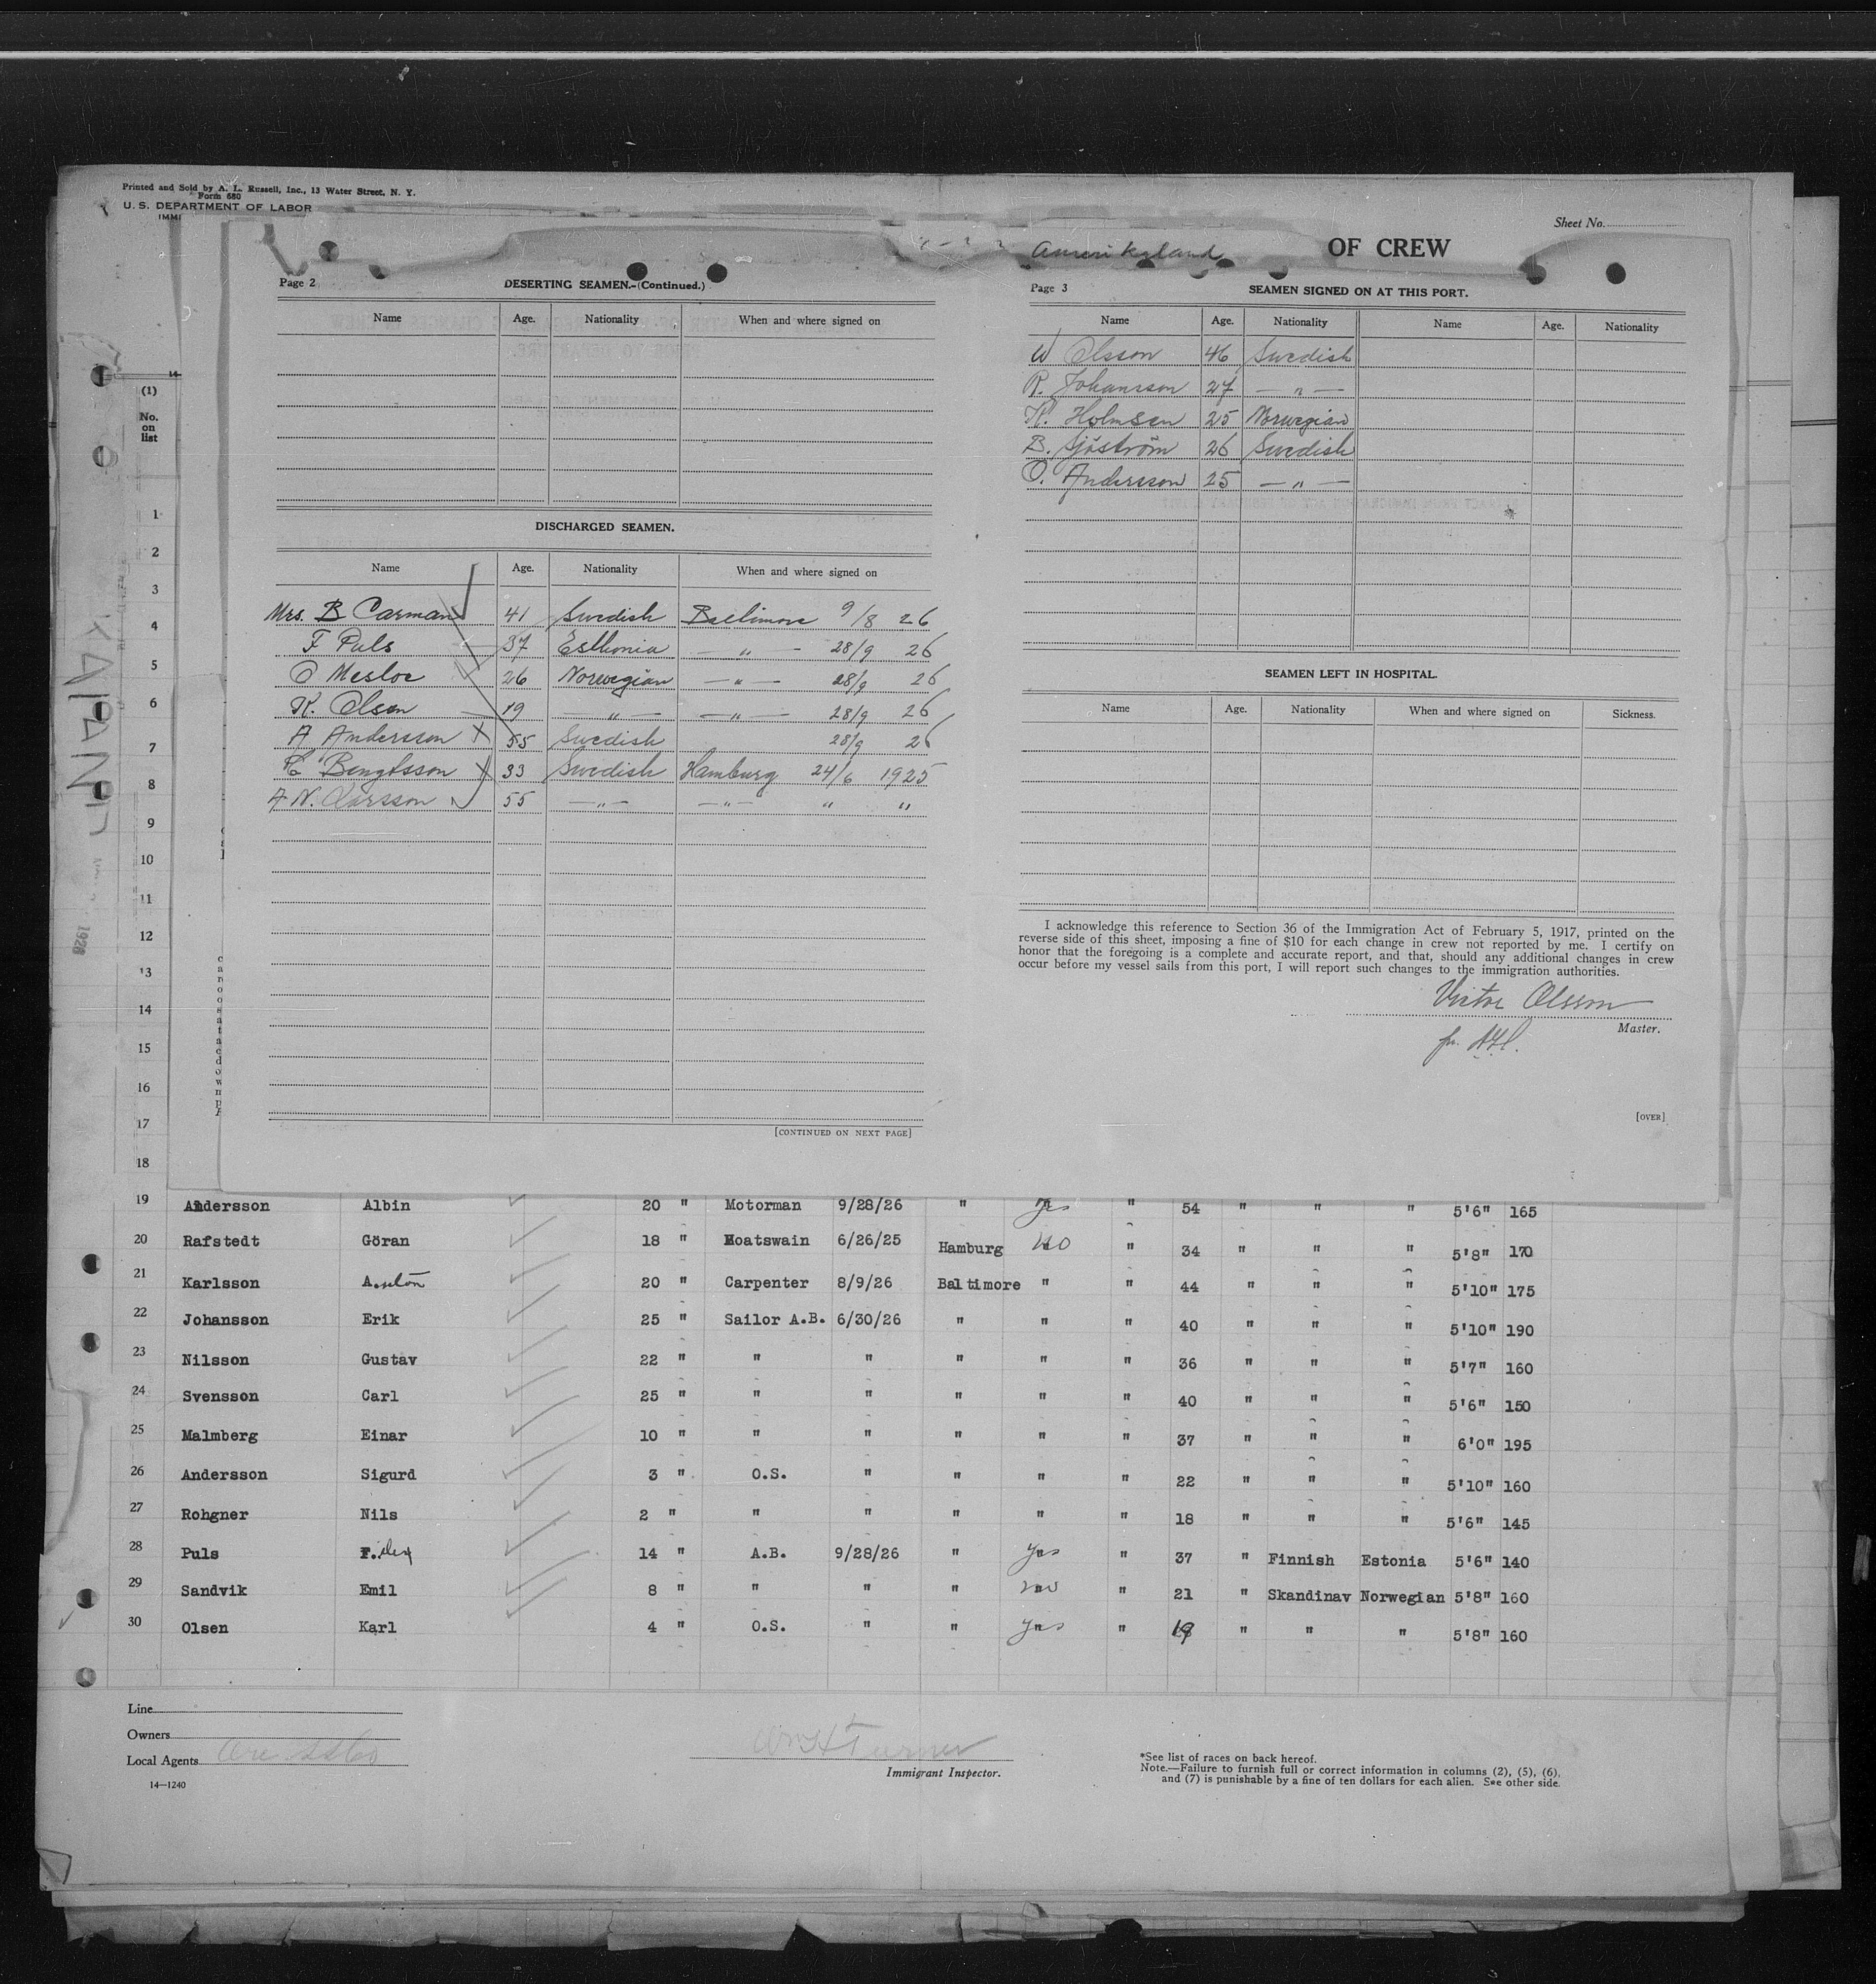 Printed and Sold by A. L. Russell, Inc., 13 Water Street, N. Y.
Form 680
U. S. DEPARTMENT OF LABOR
IMMI
Sheet No.
Amerikaland
OF CREW
(1)
No.
on
list
1
2
3
4
5
6
7
8
9
10
11
12
13
14
15
16
17
18
KAPLAN
1926
Page 2
DESERTING SEAMEN.-(Continued.)
Name Age. Nationality When and where signed on
DISCHARGED SEAMEN.
Name Age. Nationality When and where signed on
Mrs. B Carman 41 Swedish Baltimore 9/8 26
F Puls 37 Esthonia — " — 28/9 26
O Mesloe 26 Norwegian — " — 28/9 26
K. Olsen 19 — " — — " — 28/9 26
A Andersson X 55 Swedish 28/9 26
C Bengtsson X 33 Swedish Hamburg 24/6 1925
A.N. Larsson 55 — " — — " — " "
[CONTINUED ON NEXT PAGE]
Page 3
SEAMEN SIGNED ON AT THIS PORT.
Name Age. Nationality Name Age. Nationality
W Olsson 46 Swedish
R. Johansson 27 — " —
K. Holmsen 25 Norwegian
B. Sjöström 26 Swedish
O. Andersson 25 — " —
SEAMEN LEFT IN HOSPITAL.
Name Age. Nationality When and where signed on Sickness.
I acknowledge this reference to Section 36 of the Immigration Act of February 5, 1917, printed on the
reverse side of this sheet, imposing a fine of $10 for each change in crew not reported by me. I certify on
honor that the foregoing is a complete and accurate report, and that, should any additional changes in crew
occur before my vessel sails from this port, I will report such changes to the immigration authorities.
Victor Olsson
Master.
[OVER]
19 Andersson Albin 20 " Motorman 9/28/26 " yes " 54 " " " 5'6" 165
20 Rafstedt Göran 18 " Boatswain 6/26/25 Hamburg no " 34 " " " 5'8" 170
21 Karlsson 20 " Carpenter 8/9/26 Baltimore " " 44 " " " 5'10" 175
22 Johansson Erik 25 " Sailor A.B. 6/30/26 " " " 40 " " " 5'10" 190
23 Nilsson Gustav 22 " " " " " " 36 " " " 5'7" 160
24 Svensson Carl 25 " " " " " " 40 " " " 5'6" 150
25 Malmberg Einar 10 " " " " " " 37 " " " 6'0" 195
26 Andersson Sigurd 3 " O.S. " " " " 22 " " " 5'10" 160
27 Rohgner Nils 2 " " " " " " 18 " " " 5'6" 145
28 Puls 14 " A.B. 9/28/26 " yes " 37 " Finnish Estonia 5'6" 140
29 Sandvik Emil 8 " " " " no " 21 " Skandinav Norwegian 5'8" 160
30 Olsen Karl 4 " O.S. " " yes " 19 " " " 5'8" 160
Line
Owners
Local Agents
14—1240
Turner
Immigrant Inspector.
*See list of races on back hereof.
Note.—Failure to furnish full or correct information in columns (2), (5), (6),
and (7) is punishable by a fine of ten dollars for each alien. See other side.